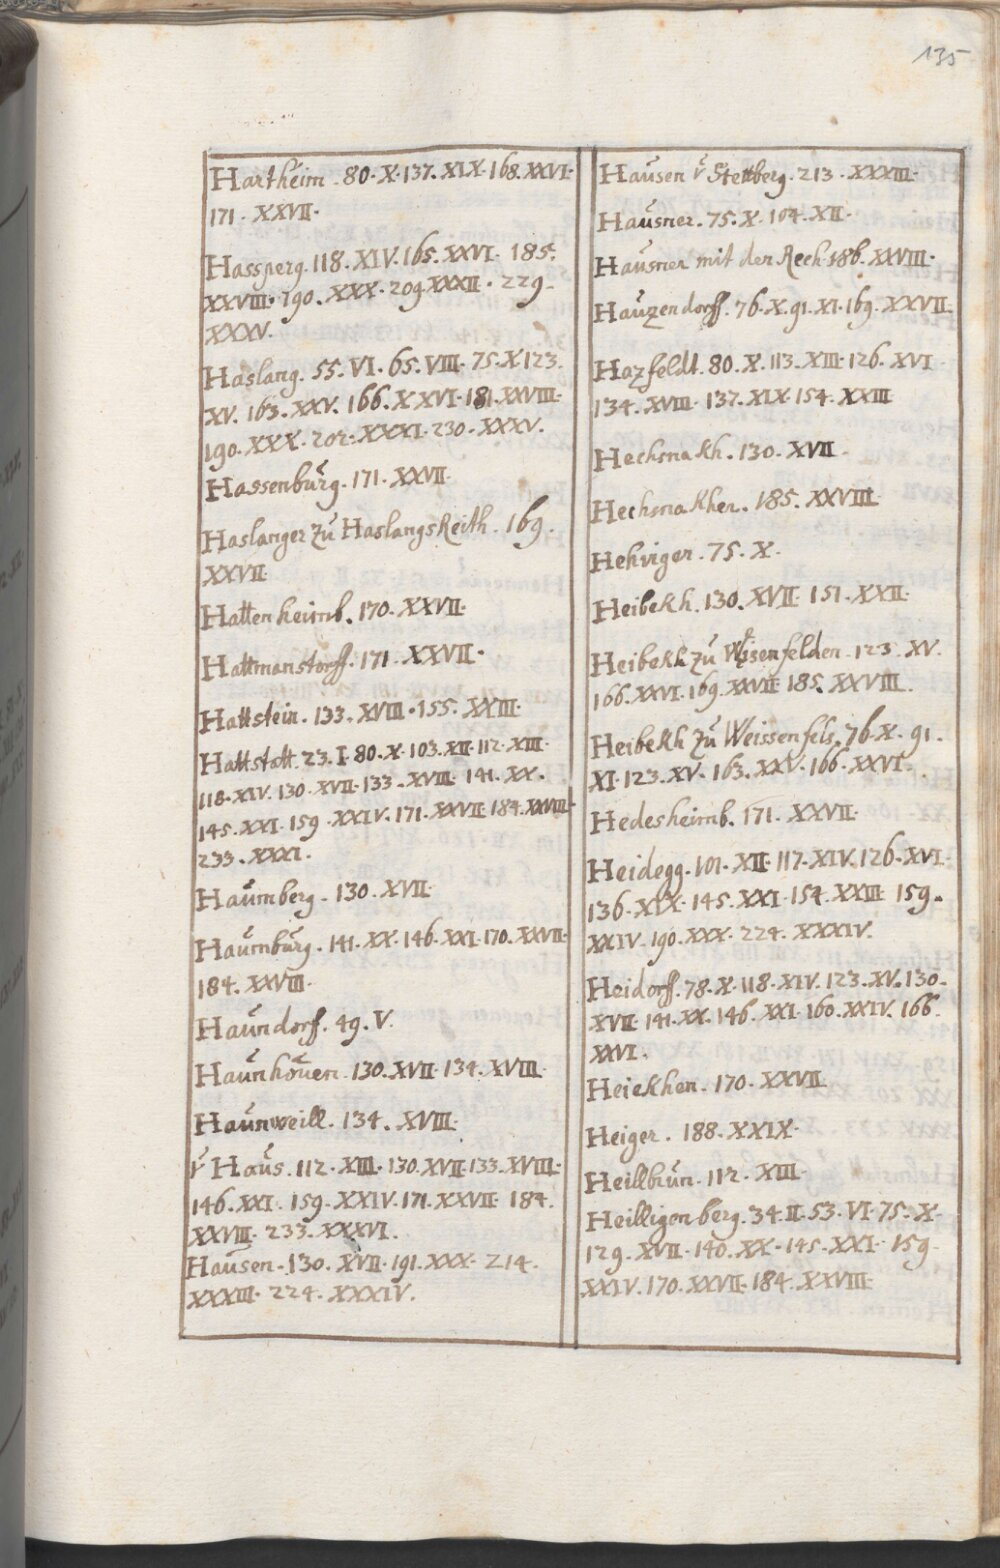 135
Hartheim . 80 . X . 137 . XIX . 168 . XXVI .
171 . XXVII .
Hassperg . 118 . XIV . 165 . XXVI . 185 .
XXVIII . 190 . XXX . 209 XXXII . 229 .
XXXV .
Haslang . 55 . VI . 65 . VIII . 75 . X 123 .
XV . 163 . XXV . 166 . XXVI . 181 . XXVIII .
190 . XXX . 202 . XXXI . 230 . XXXV .
Hassenbŭrg . 171 . XXVII
Haslanger zŭ HaslangsKeith . 169 .
XXVII
Hattenheimb . 170 . XXVII .
Hattmanstorff . 171 . XXVII .
Hattstein . 133 . XVIII . 155 . XXIII .
Hattstatt . 23 . I . 80 . X . 103 . XII . 112 . XIII .
118 . XIV . 130 . XVII . 133 . XVIII . 141 . XX .
145 . XXI . 159 . XXIV . 171 . XXVII . 184 . XXVIII
233 . XXXI .
Haŭmberg . 130 . XVII
Haŭmbŭrg . 141 . XX . 146 . XXI . 170 . XXVII .
184 . XXVIII .
Haŭndorf . 49 . V .
Haŭnhŏuen . 130 . XVII . 134 . XVIII .
Haŭnweill . 134 . XVIII .
v̆ Haŭs . 112 . XIII . 130 . XVII . 133 . XVIII .
146 . XXI . 159 . XXIV . 171 . XXVII . 184 .
XXVIII . 233 . XXXVI .
Haŭsen . 130 . XVII . 191 . XXX . 214 .
XXXIII . 224 . XXXIV .
Haŭsen v̆ Stettberg . 213 . XXXIII .
Haŭsner . 75 . X . 104 . XII .
Haŭsner mit den Rech . 186 . XXVIII .
Haŭzendorff . 76 . X . 91 . XI . 169 . XXVII
Hazfeldt . 80 . X . 113 . XIII . 126 . XVI
134 . XVIII . 137 . XIX . 154 . XXIII
Hechsnakh . 130 . XVII .
Hechsnakher . 185 . XXVIII
Hehriger . 75 . X .
Heibekh . 130 . XVII . 151 . XXII .
Heibekh zŭ Wisenfelden . 123 . XV .
166 . XXVI . 169 . XXVII 185 . XXVIII .
Heibekh zŭ Weissenfels . 76 . X . 91 .
XI . 123 . XV . 163 . XXV . 166 . XXVI .
Hedesheimb . 171 . XXVII .
Heidegg . 101 . XII . 117 . XIV . 126 . XVI .
136 . XIX . 145 . XXI . 154 . XXIII . 159 .
XXIV . 190 . XXX . 224 . XXXIV .
Heidorff . 78 . X . 118 . XIV . 123 . XV . 130 .
XVII . 141 . XX . 146 . XXI . 160 . XXIV . 166 .
XXVI .
Heiekhen . 170 . XXVII
Heiger . 188 . XXIX .
Heillbrŭn . 112 . XIII .
Heilligenberg . 34 . II . 53 . VI . 75 . X .
129 . XVII . 140 . XX . 145 . XXI . 159 .
XXIV . 170 . XXVII . 184 . XXVIII .